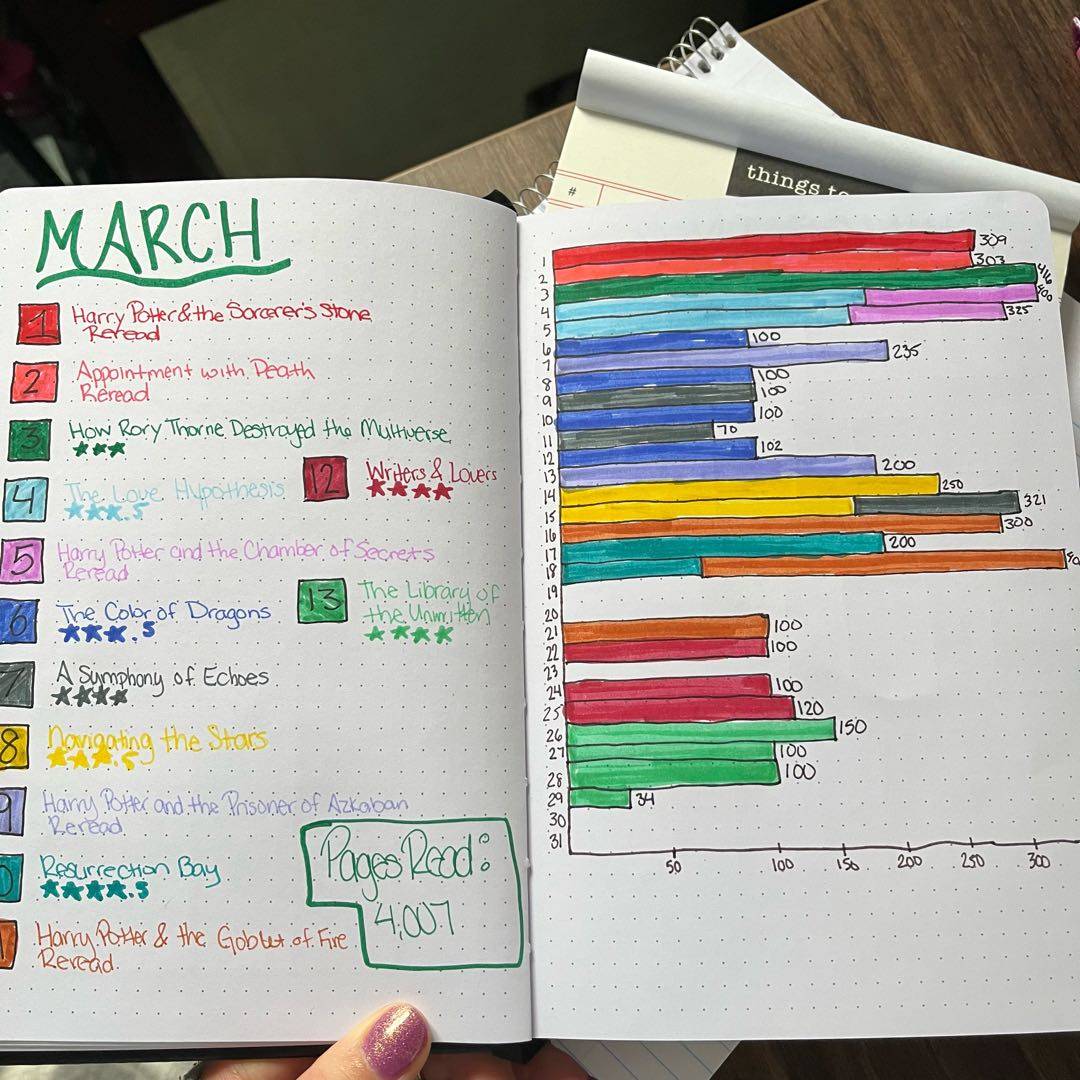 things to
#
MARCH
1 Harry Potter & the Sorcerer's Stone
Reread
2 Appointment with Death
Reread
3 How Rory Thorne Destroyed the Multiverse
★★★
4 The Love Hypothesis
★★★.5
5 Harry Potter and the Chamber of Secrets
Reread
6 The Color of Dragons
★★★.5
7 A Symphony of Echoes
★★★★
8 Navigating the Stars
★★★.5
9 Harry Potter and the Prisoner of Azkaban
Reread
0 Resurrection Bay
★★★★.5
1 Harry Potter & the Goblet of Fire
Reread
12 Writers & Lovers
★★★★
13 The Library of
the Unwritten
★★★★
Pages Read:
4,007
309
1 303
2 416
3 400
4 325
5
6 100
7 235
8 100
9 100
10 100
11 70
12 102
13 200
14 250
15 321
16 300
17 200
18
19
20
21 100
22 100
23
24 100
25 120
26 150
27 100
28 100
29 34
30
31
50 100 150 200 250 300